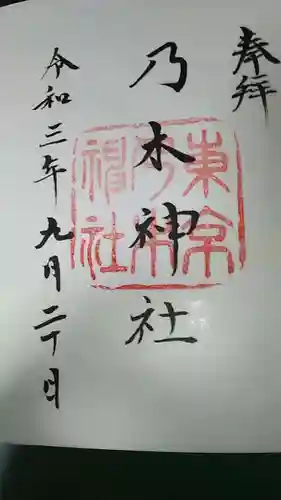 奉拝
乃木神社
東京乃木神社
令和三年九月二十日